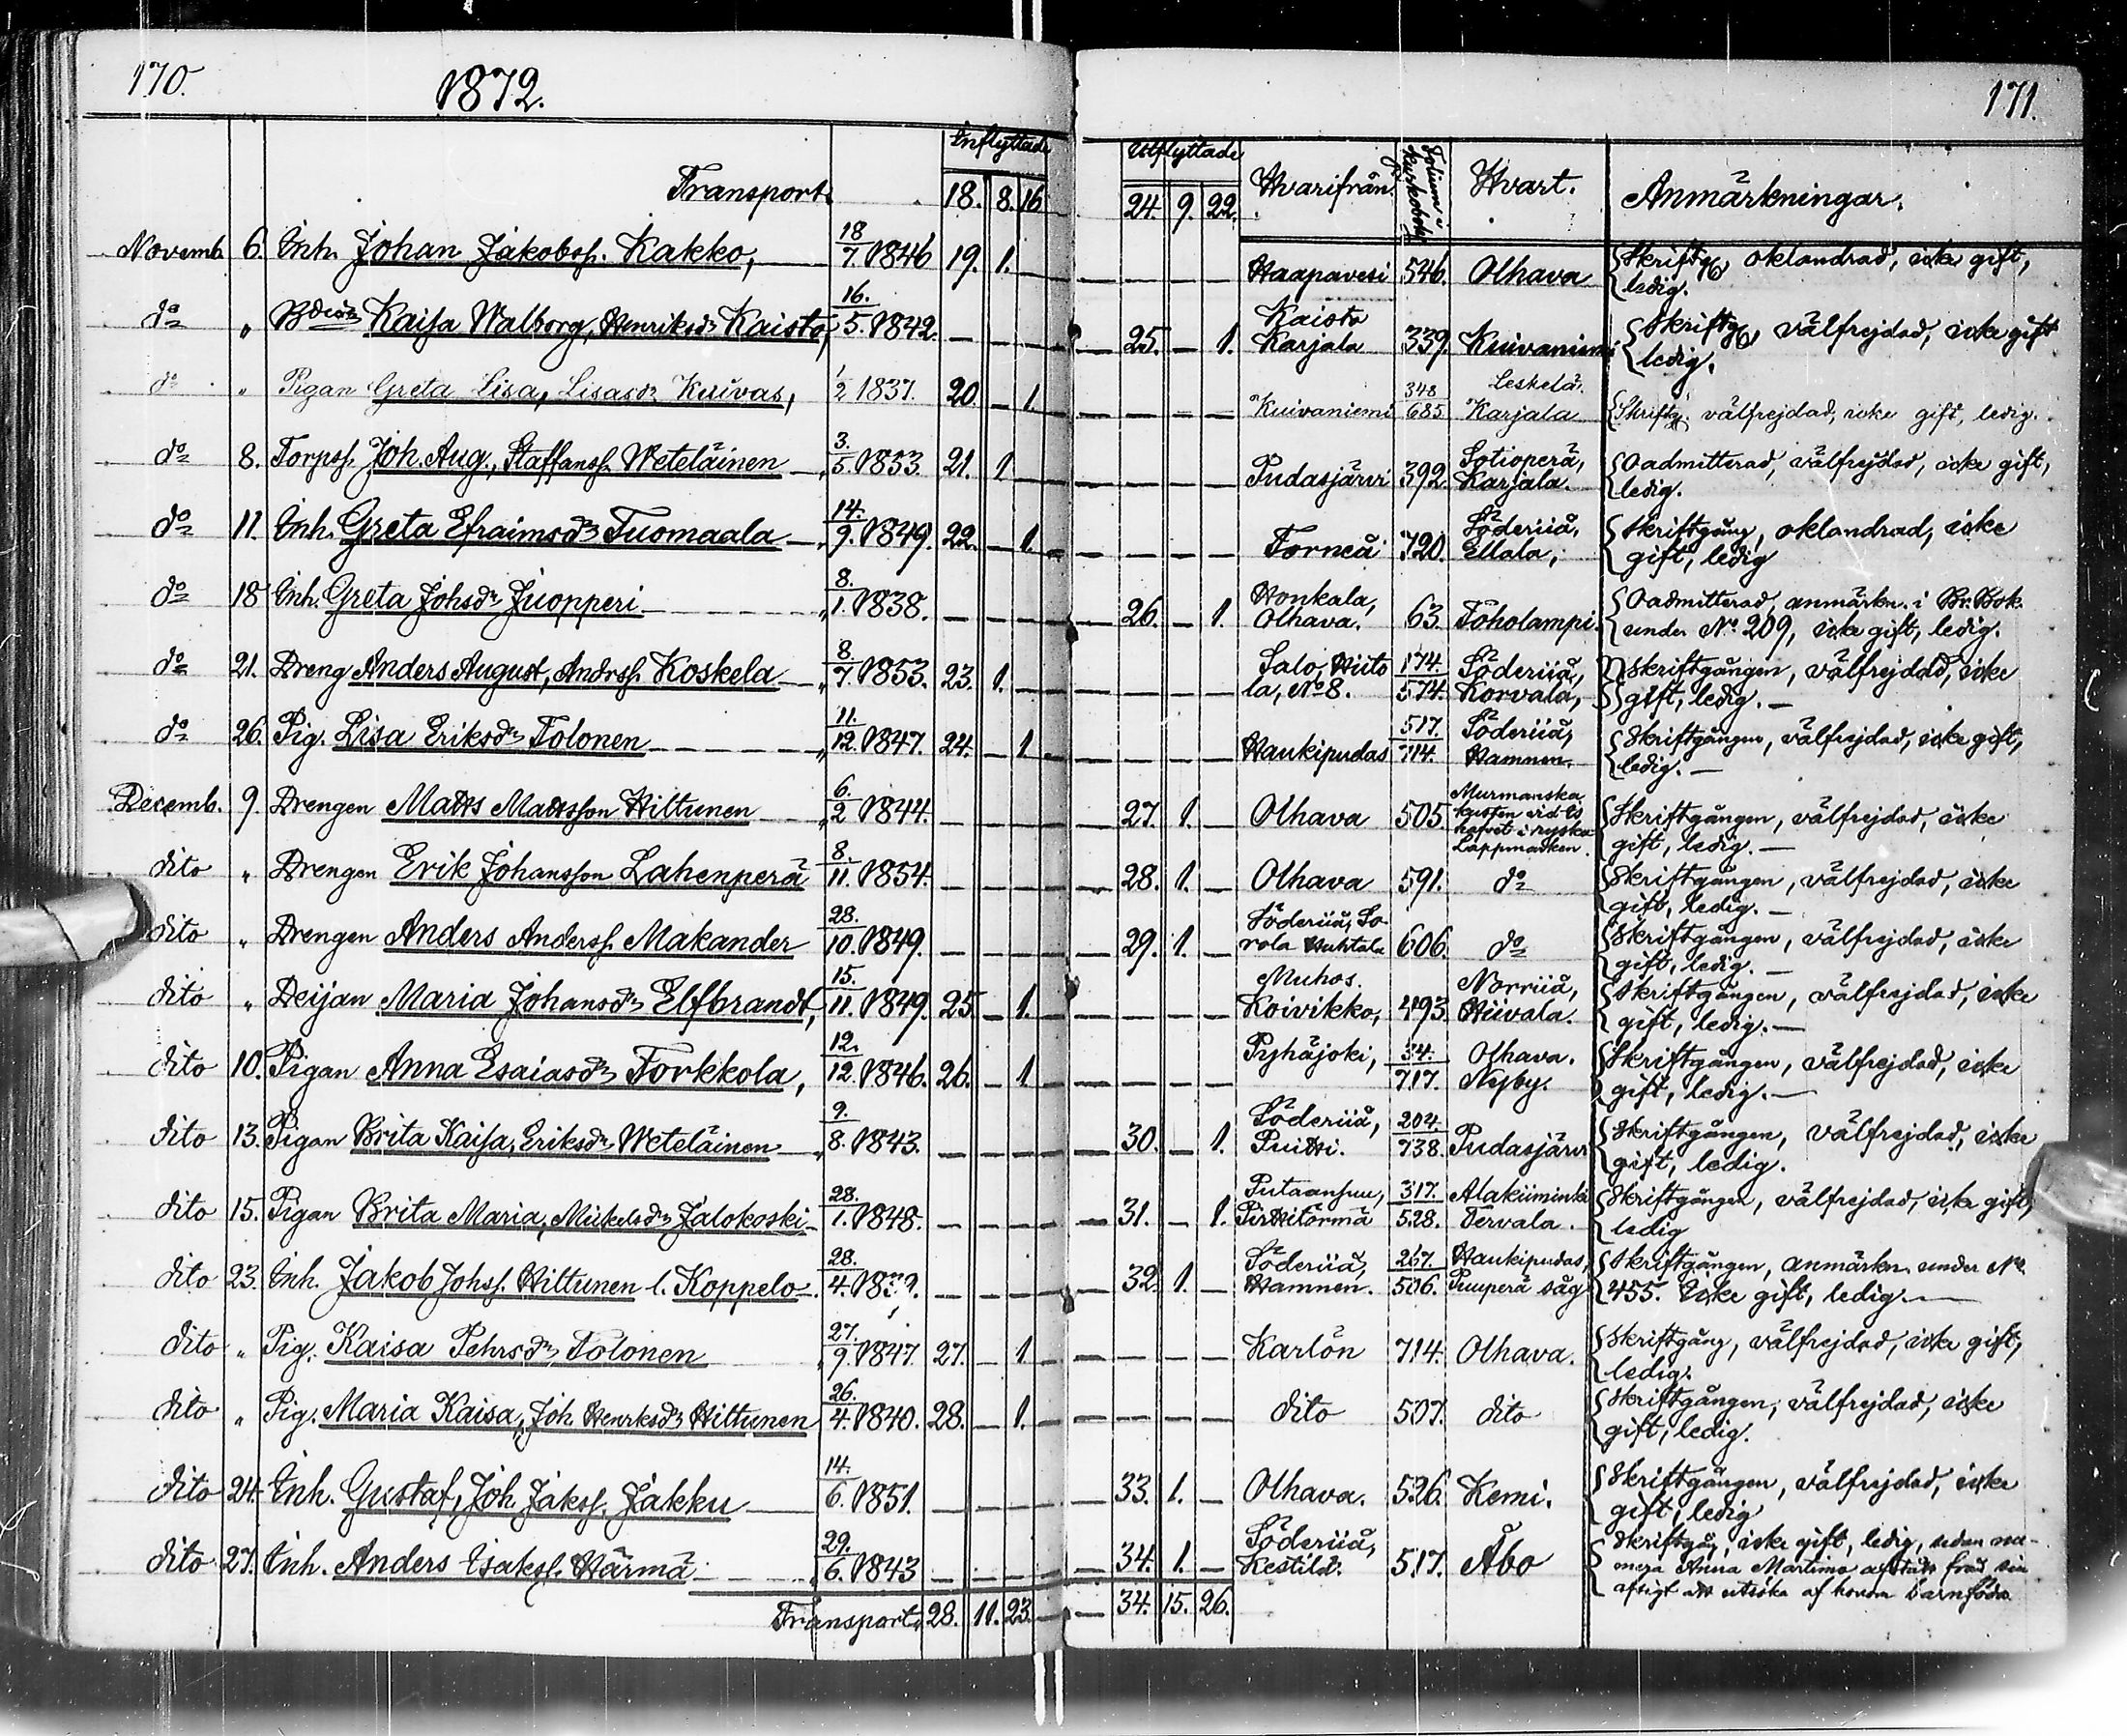 170.
1872.
171.
Inflyttade
Utflyttade
Hvarifrån.
Folium i Kyrkoboken
Hvart.
Anmärkningar.
Transport. 18. 8. 16 24. 9. 22.
Novemb. 6. Inh. Johan Jakobss. Kakko, 18/7. 1846 19. 1. — — — — Haapavesi 546. Olhava Skriftg, oklandrad, icke gift, ledig.
do " Bdrn Kaisa Walborg, Henriksdr Kaisto, 16./5. 1842. — — — 25. — 1. Kaisto Karjala 339. Kuivaniemi Skriftg, välfrejdad, icke gift ledig.
do " Pigan Greta Lisa, Lisasdr Kuivas, 1/2 1837. 20. — 1. — — — Kuivaniemi 348/685 Leskelä. Karjala Skriftg. välfrejdad, icke gift, ledig.
do 8. Torpss. Joh. Aug., Staffanss. Weteläinen 3./5. 1853. 21. 1 — — — — Pudasjärvi 392. Sotioperä, Karjala. Oadmitterad, välfrejdad, icke gift, ledig.
do 11. Inh. Greta Efraimsdr Tuomaala 14./9. 1849. 22. — 1. — — — Torneå 720. Söderiiå, Ellala, Skriftgång, oklandrad, icke gift, ledig
do 18 Inh. Greta Johsdr Juopperi 8./1. 1838. — — — 26. — 1. Honkala, Olhava. 63. Toholampi. Oadmitterad, anmärkn. i Br. Bok. under No 209, icke gift, ledig.
do 21. Dreng Anders August, Andrss. Koskela 8./7. 1853. 23. 1. — — — — Salo, Hiitola, No 8. 174./574. Söderiiå, Korvala, Skriftgången, välfrejdad, icke gift, ledig. —
do 26. Pig. Lisa Eriksdr Tolonen 11./12. 1847. 24. — 1. — — — Haukipudas 517./714. Söderiiå, Hamnen. Skriftgången, välfrejdad, icke gift, ledig. —
Decemb. 9. Drengen Matts Mattsson Hiltunen 6./2 1844. — — — 27. 1. — Olhava 505 Murmanska kusten vid Ishafvet i ryska Lappmarken. Skriftgången, välfrejdad, icke gift, ledig. —
dito " Drengen Erik Johansson Lahenperä 8./11. 1854. — — — 28. 1. — Olhava 591. do Skriftgången, välfrejdad, icke gift, ledig. —
dito " Drengen Anders Anderss. Makander 28./10. 1849. — — — 29. 1. — Söderiiå, Sorola Huhtala 606. do Skriftgången, välfrejdad, icke gift, ledig. —
dito " Deijan Maria Johansdr Elfbrandt, 15./11. 1849. 25. — 1. — — — Muhos. Koivikko, 493. Norriiå, Hiivala. Skriftgången, välfrejdad, icke gift, ledig. —
dito 10. Pigan Anna Esaiasdr Torkkola, 12./12. 1846. 26. — 1. — — — Pyhäjoki, 34./717. Olhava. Nyby. Skriftgången, välfrejdad, icke gift, ledig. —
dito 13. Pigan Brita Kaisa, Eriksdr Weteläinen 9./8. 1843. — — — 30. — 1. Söderiiå, Puitti. 204./738. Pudasjärvi Skriftgången, välfrejdad, icke gift, ledig.
dito 15. Pigan Brita Maria, Mickelsdr Jalokoski 28./1. 1848. — — — 31. — 1. Putaansuu, Pirttitörmä 317./528. Alakiiminki Tervala. Skriftgången, välfrejdad, icke gift, ledig
dito 23. Inh. Jakob Johss. Hiltunen l. Koppelo 28./4. — — — 32. 1. — Söderiiå, Hamnen. 267./506. Haukipudas, Puuperä såg Skriftgången, anmärkn. under No 455. Icke gift, ledig. —
dito " Pig. Kaisa Pehrsdr Tolonen 27./9. 1847. 27. — 1. — — — Karlön 714. Olhava. Skriftgång, välfrejdad, icke gift, ledig.
dito " Pig. Maria Kaisa, Joh Henrksdr Hiltunen 26./4. 1840. 28. — 1. — — — dito 507. dito Skriftgången, välfrejdad, icke gift, ledig.
dito 24. Inh. Gustaf, Joh Jakss. Jakku 14./6. 1851. — — — 33. 1. — Olhava. 526. Kemi. Skriftgången, välfrejdad, icke gift, ledig
dito 27. Inh. Anders Isakss. Härmä 29./6. 1843 — — — 34. 1. — Söderiiå, Kestilä. 517. Åbo Skriftgå, icke gift, ledig, sedan Anna Martimo afstått från sin afsigt att utsöka af honom barnföda
Transport. 28. 11. 23. — 34. 15. 26.